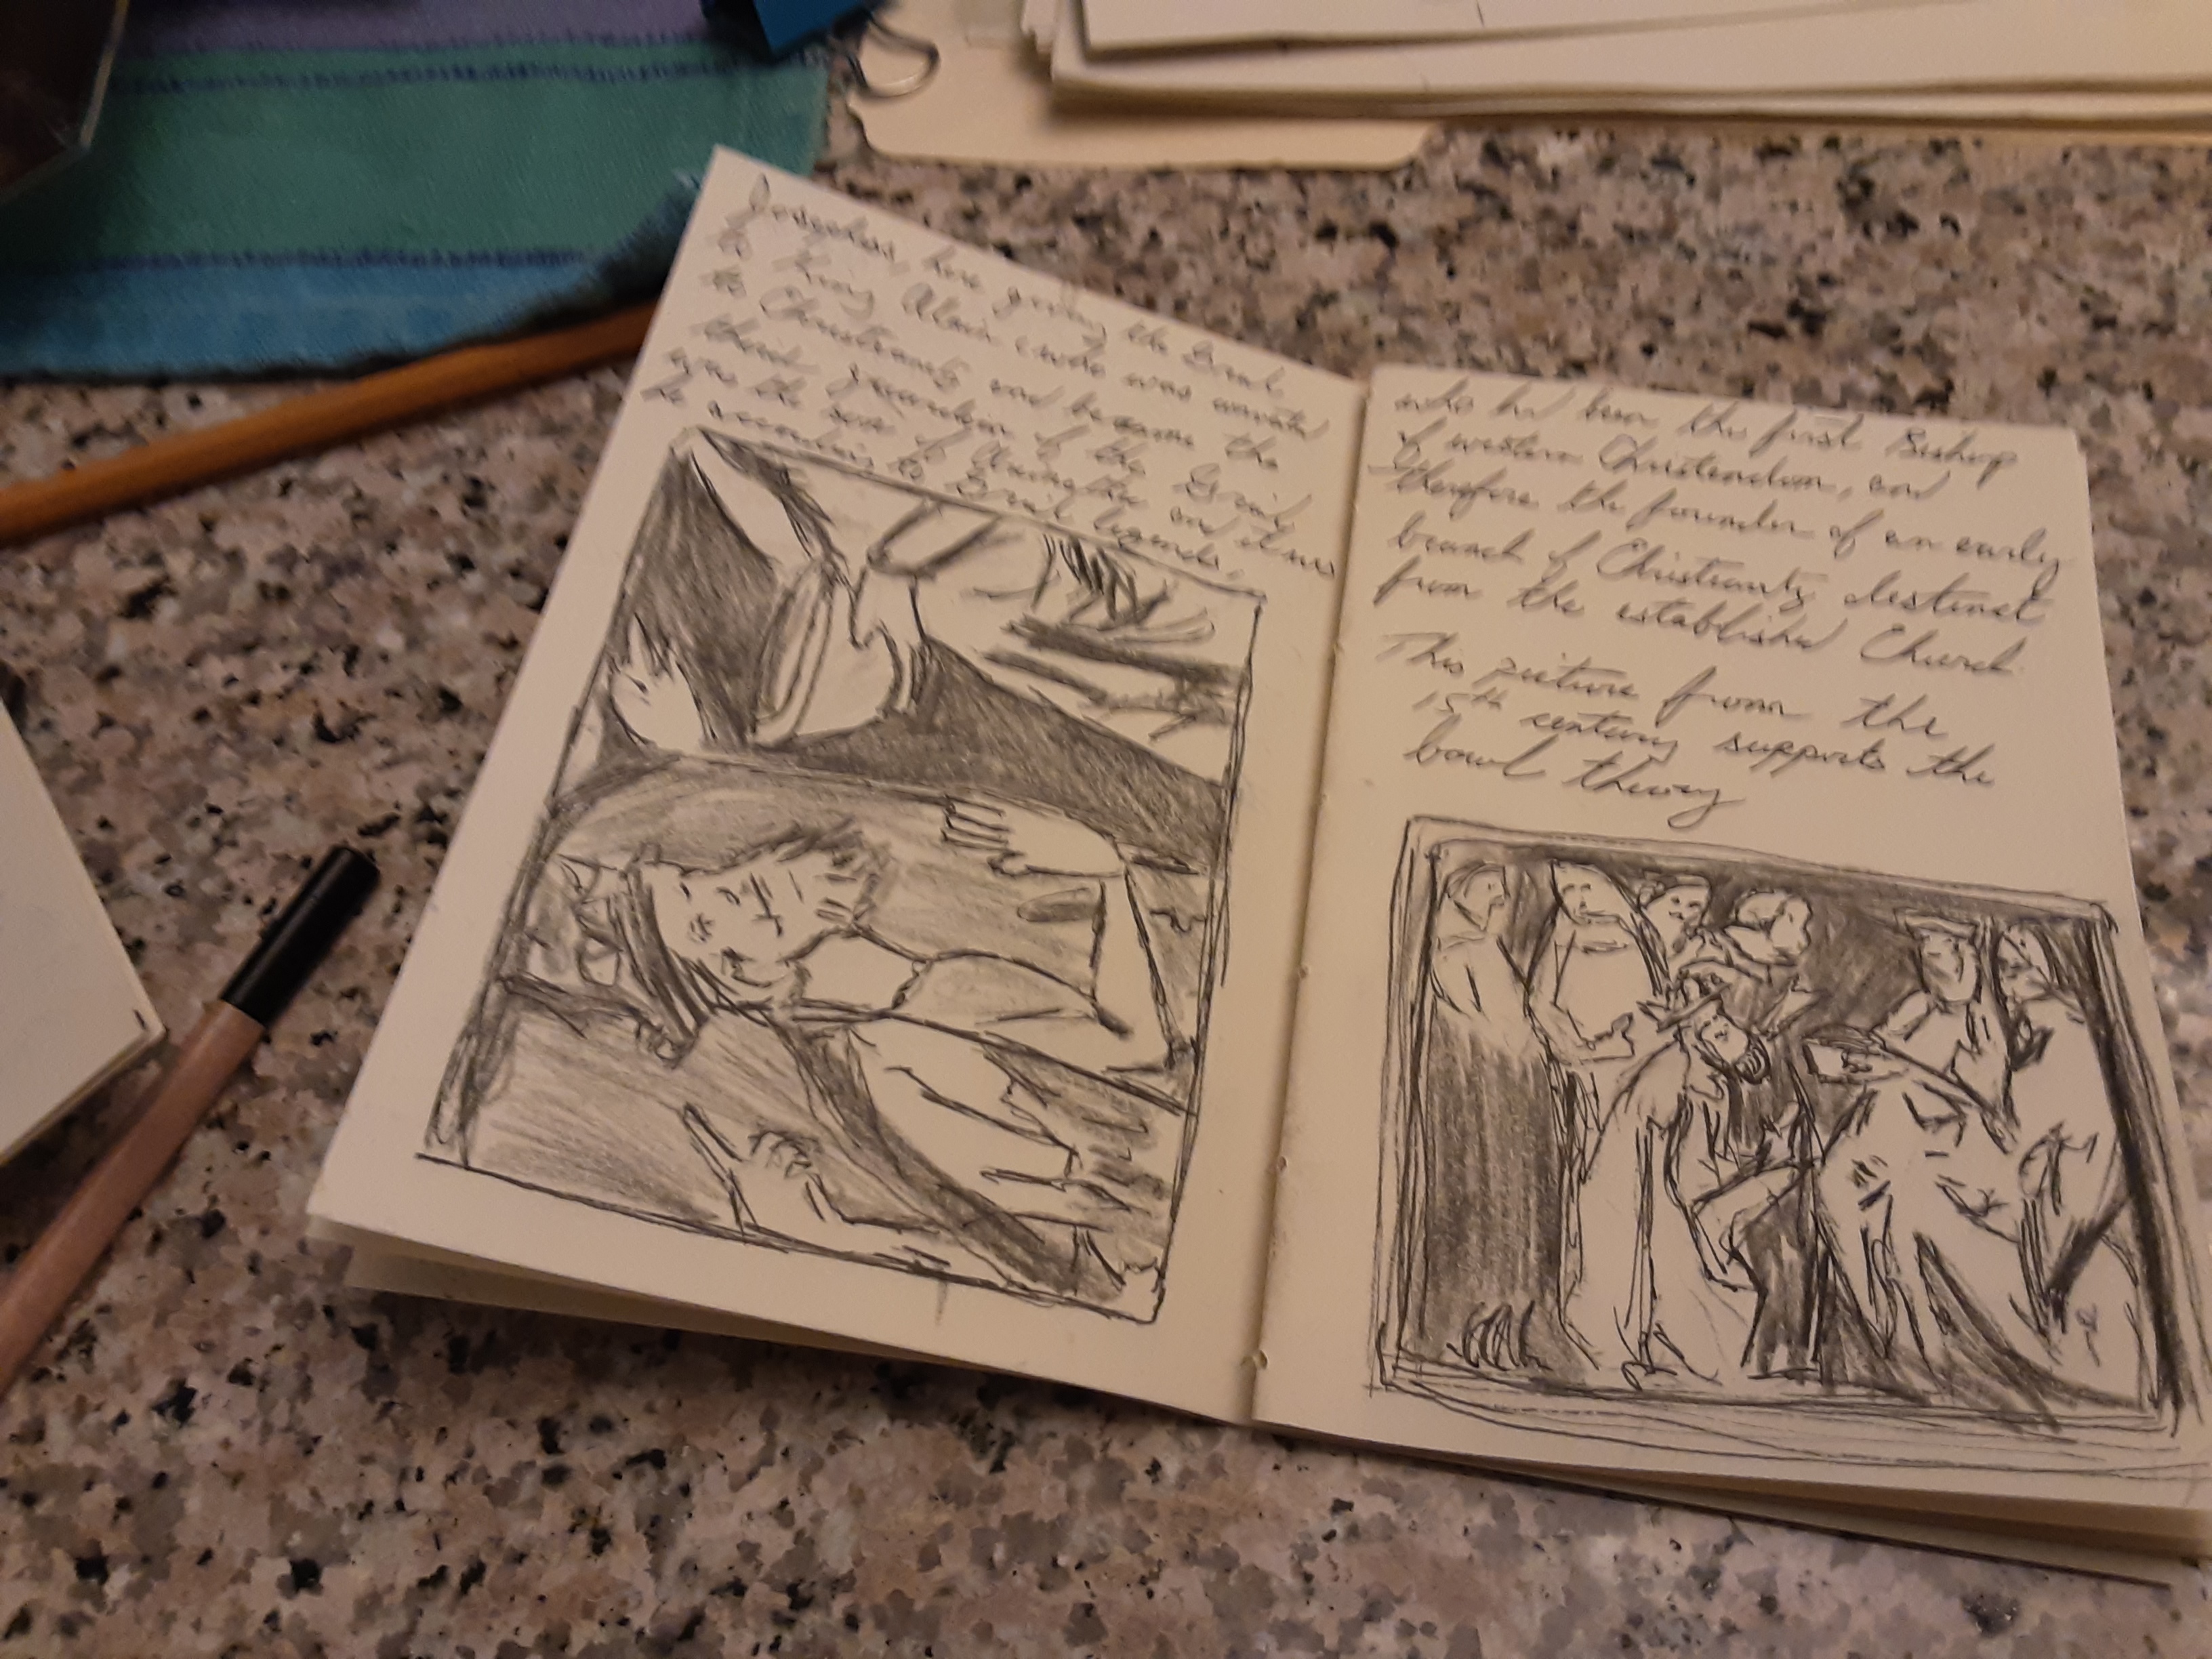 Josephus, here giving the Grail
to King Alain (who was
to Christianity and became the
third guardian of the Grail
was the son of and
he according to Grail legends.
who had been the first Bishop
of western Christendom, and
therefore the founder of an early
branch of Christianity destinct
from the established Church.
This picture from the
15th century supports the
bowl theory